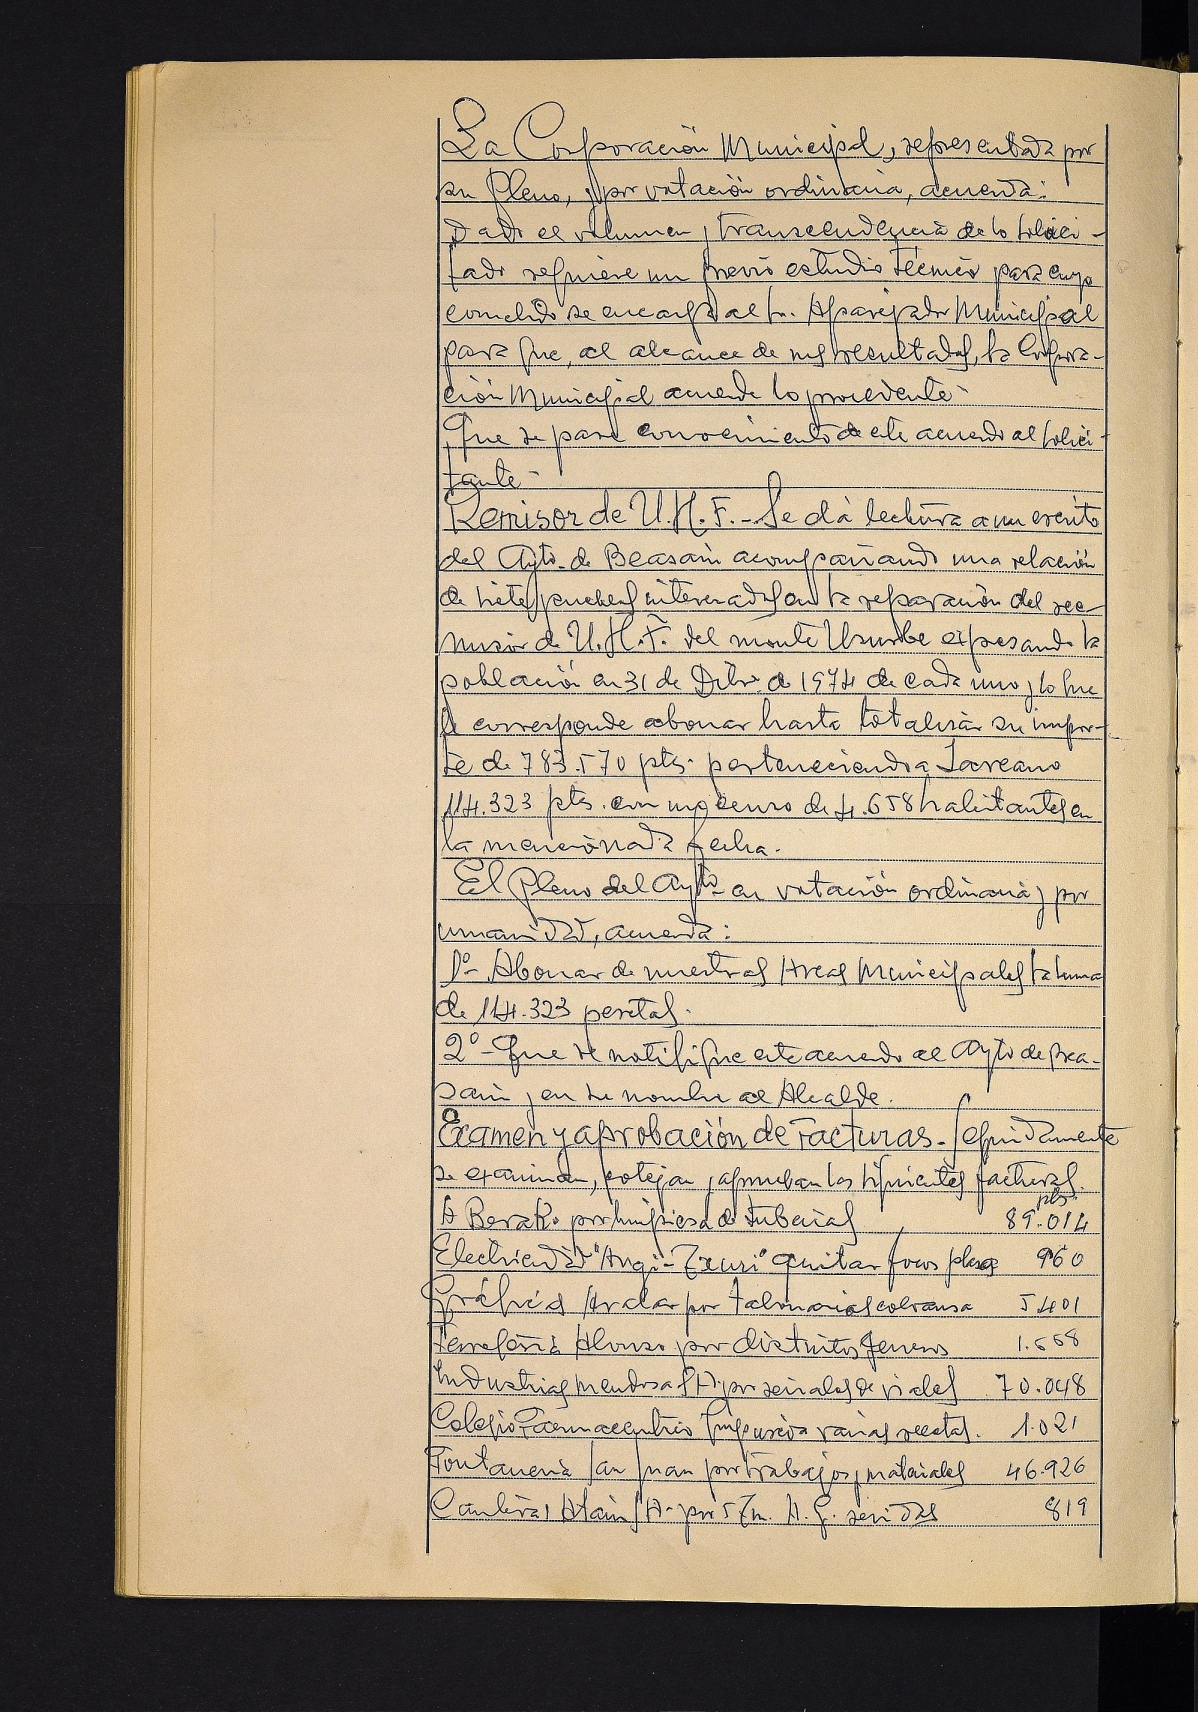 La Corporación Municipal, representada por
su Pleno, y por votación ordinaria, acuerda:
Dado el volumen y transcendencia de lo solici-
tado requiere un previo estudio técnico para cuyo
cometido se encarga al Sr. Aparejador Municipal
para que, al alcance de sus resultados, la Corpora-
ción Municipal acuerde lo procedente-
Que se pase conocimiento de este acuerdo al solici-
tante-
Remisor de U.H.F.- Se dá lectura a un escrito
del Ayto. de Beasain acompañando una relación
de siete pueblos interesados en la reparación del ree-
misor de U.H.F. del monte Usurbe expresando la
población en 31 de Dibre de 1974 de cada uno y lo que
le corresponde abonar hasta totalizar su impor-
te de 783.570 pts. perteneciendo a Lazcano
114.323 pts. con un censo de 4.658 habitantes en
la mencionada fecha.
El Pleno del Ayto. en votación ordinaria y por
unanimidad, acuerda:
1º- Abonar de nuestras Arcas Municipales la suma
de 114.323 pesetas.
2º- Que se notifique este acuerdo al Ayto de Bea-
sain y en su nombre al Alcalde.
Examen y aprobación de Facturas.- Seguidamente
se examinan, cotejan y aprueban las siguientes facturas.
pts.
A Beraza por limpieza de tuberias 89.014
Electricidad "Argi-Txuri" quitar focos plaza 960
Gráficas Aralar por talonarios cobranza 5401
Ferretería Alonso por distintos generos 1.558
Industrias Mendoza S.A. por señales de viales 70.048
Colegio Farmaceutico Guipuzcoa varias recetas. 1.021
Fontanería San Juan por trabajos y materiales 46.926
Canteras Atain S.A. por 5 Tm. A.G. servidas 819